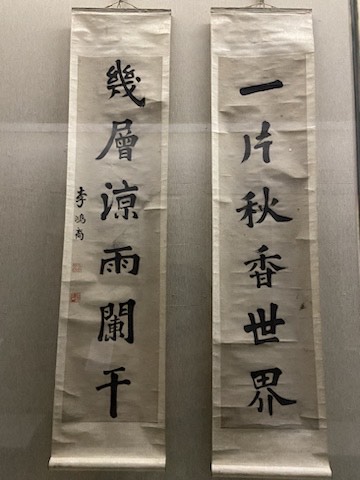 一片秋香世界
幾層涼雨闌干
李鴻裔